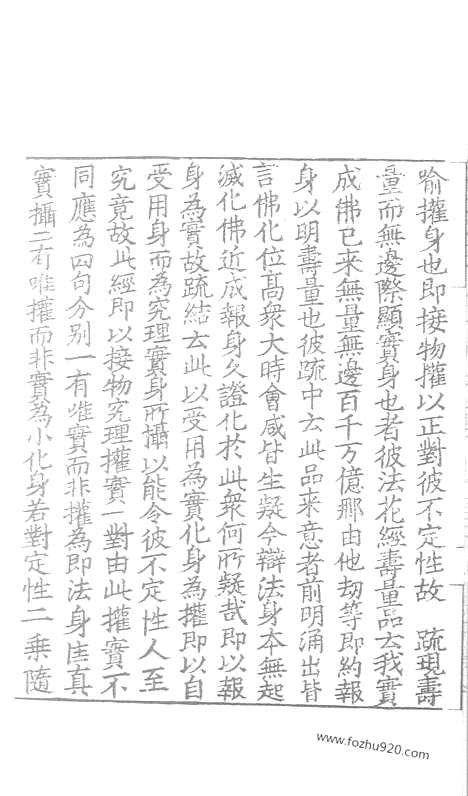 喻攉身也即接物攉以正對彼不定性故　疏現壽
量而無邊際顯實身也者彼法花經壽量品云我實
成佛已来無量無邊百千万億那由他劫等即約報
身以明壽量也彼疏中云此品来意者前明涌出皆
言佛化位髙衆大時會咸皆生疑今辯法身本無起
滅化佛近成報身久證化於此衆何所疑哉即以報
身為實故疏結云此以受用為實化身為攉即以自
受用身而為究理實身所攝以能令彼不定性人至
究竟故此經即以接物究理攉實一對由此攉實不
同應為四句分别一有唯實而非攉為即法身固真
實攝二有唯攉而非實為小化身若對定性二乗隨
www.fozhu920.com